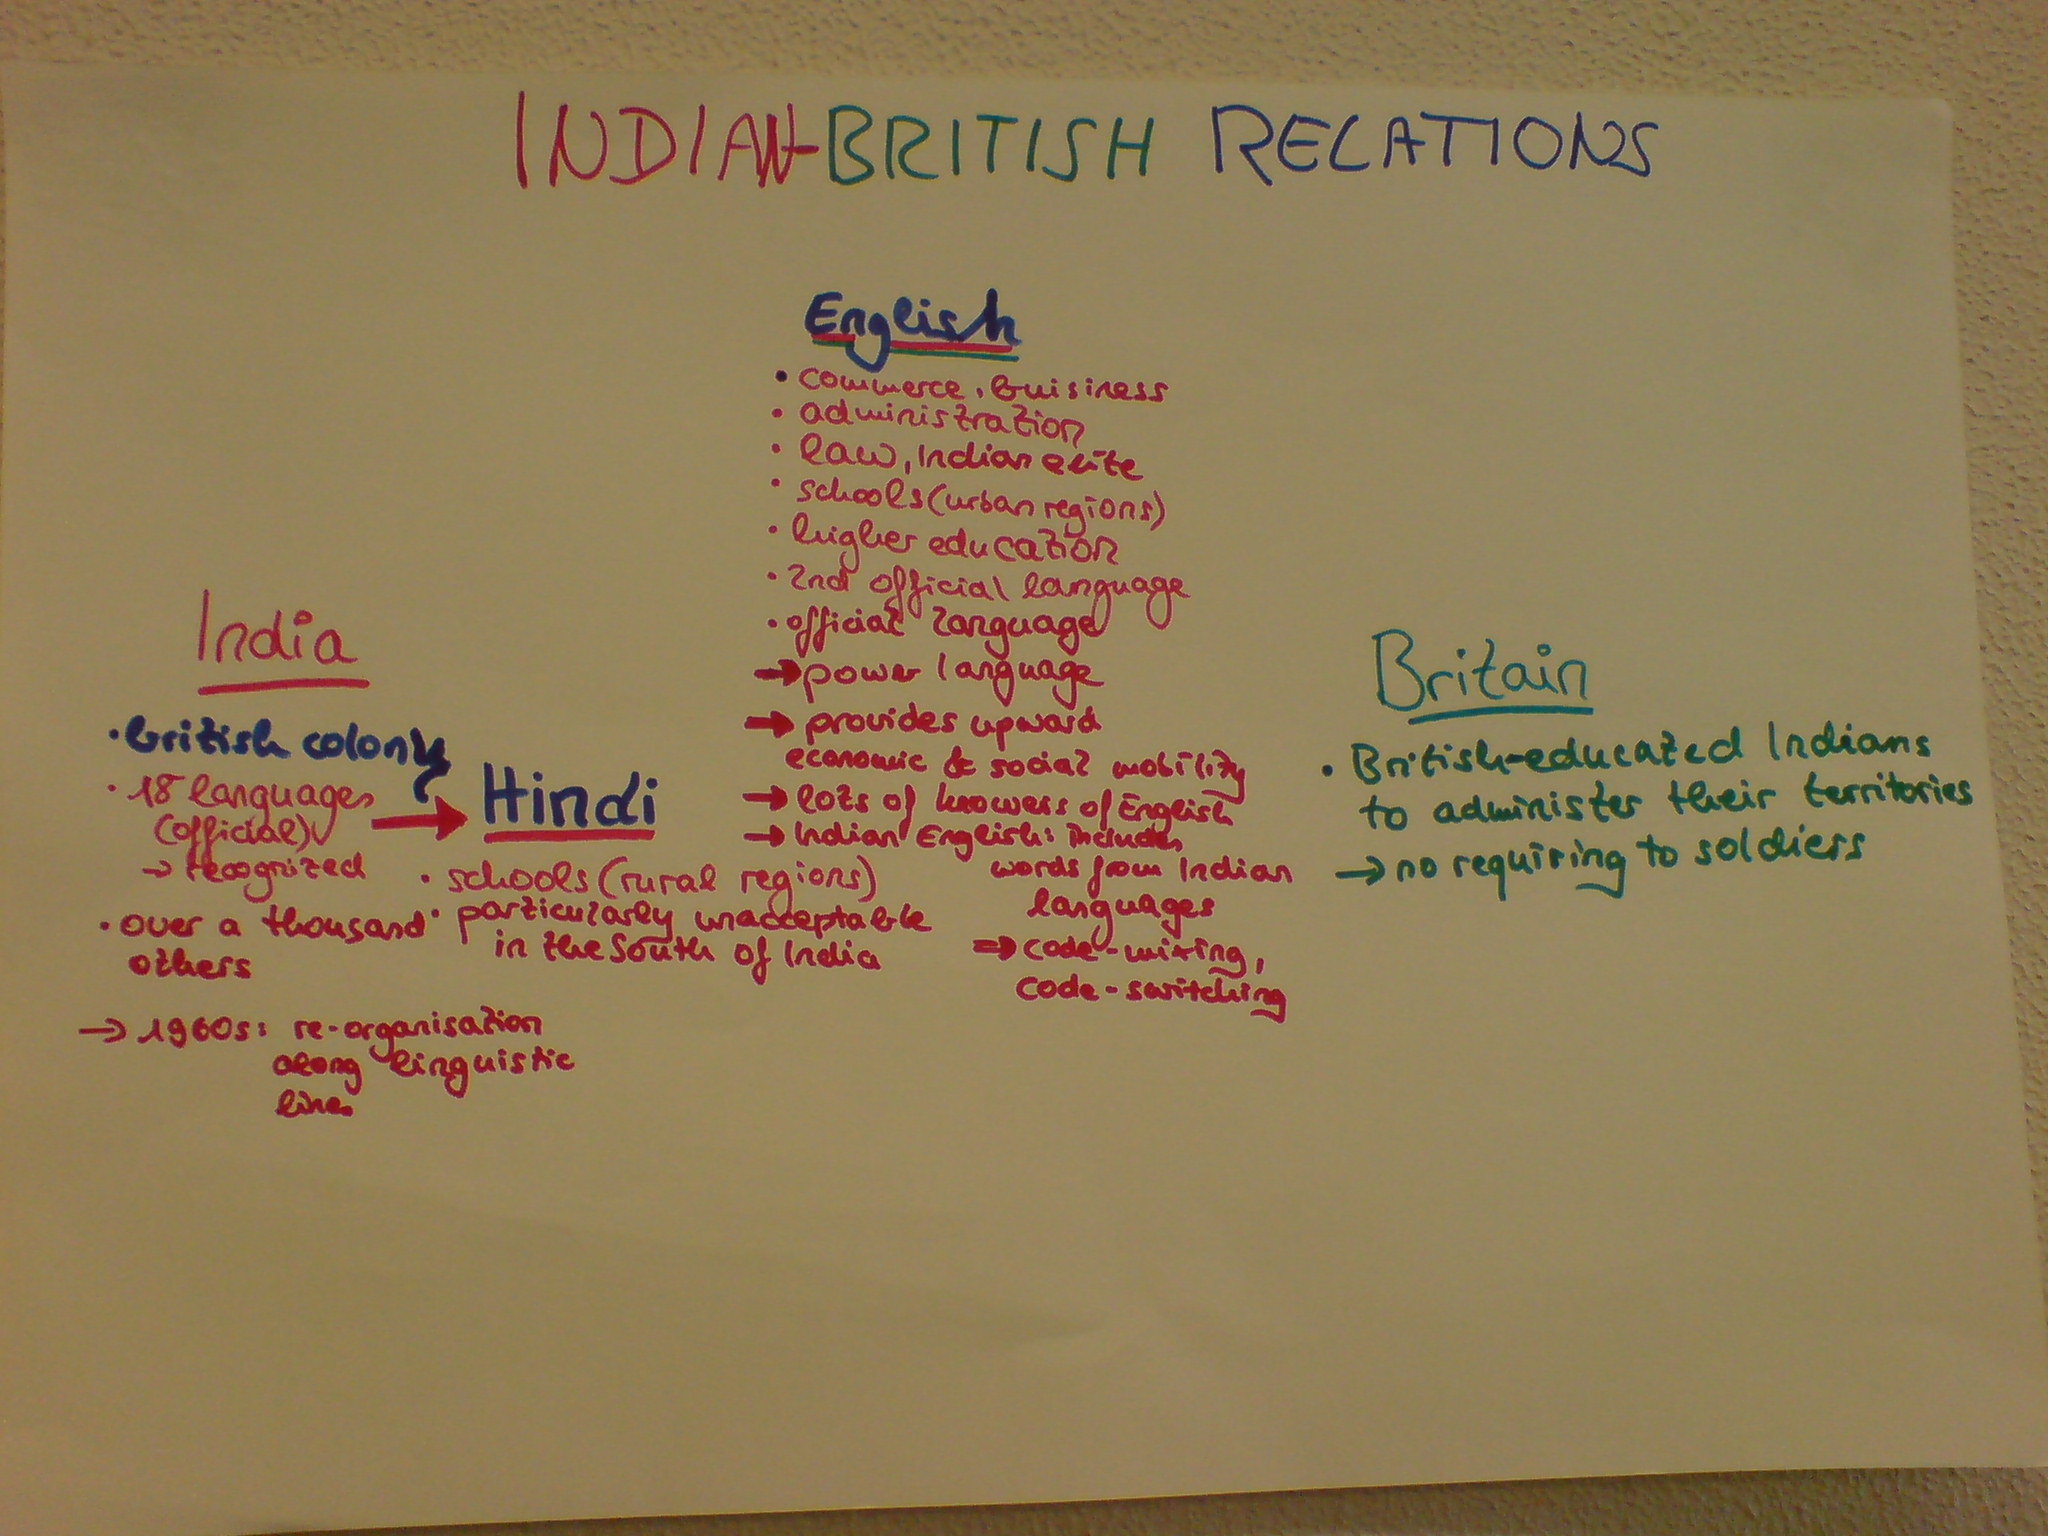 INDIAN-BRITISH RELATIONS
English
• commerce, buisiness
• administration
• law, Indian elite
• schools (urban regions)
• higher education
• 2nd official language
• official language
→ power language
→ provides upward
economic & social mobility
→ lots of knowers of English
→ Indian English: includes
words from Indian
languages
⇒ code-mixing,
code-switching
India
• british colony
• 18 languages
(official)
→ recognized
• over a thousand
others
→ 1960s: re-organisation
along linguistic
lines
Hindi
• schools (rural regions)
• particularly unacceptable
in the South of India
Britain
• British-educated Indians
to administer their territories
→ no requiring to soldiers